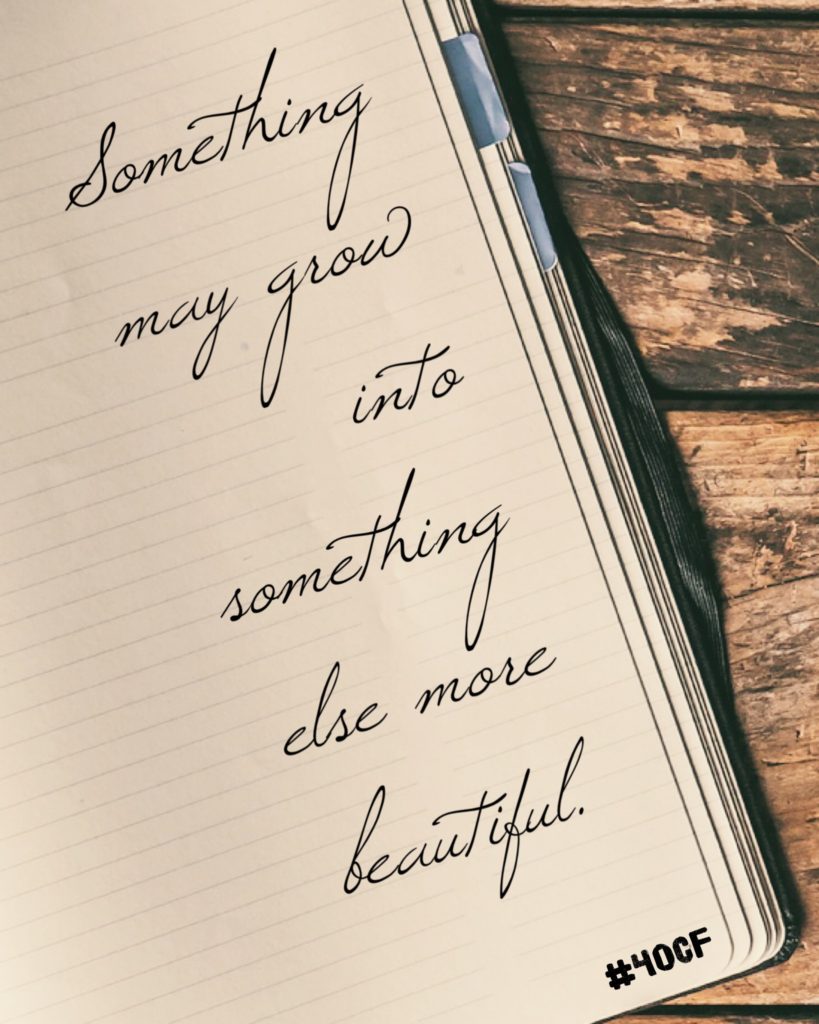 Something
may grow
into
something
else more
beautiful.
#40CF